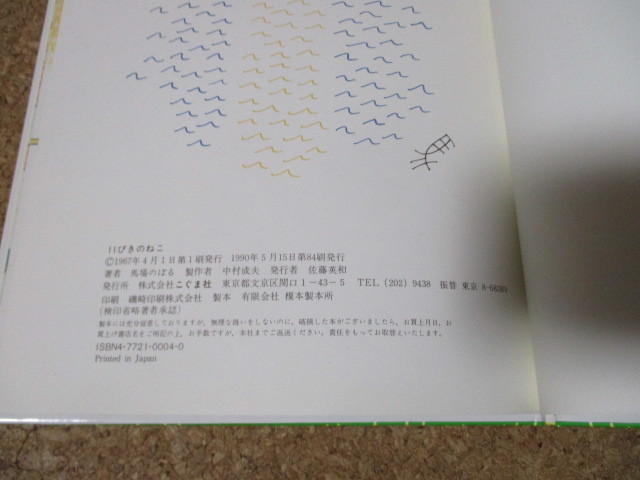 11ぴきのねこ
©1967年4月1日第1刷発行 1990年5月15日第84刷発行
著者 馬場のぼる 製作者 中村成夫 発行者 佐藤英和
発行所 株式会社こぐま社 東京都文京区関口1-43-5 TEL (202) 9438 振替 東京
印刷 磯崎印刷株式会社 製本 有限会社 榎本製本所
(検印省略著者承認)
製本には充分留意しておりますが、無理な扱いをしないのに、破損した本がございましたら、お買上月日、お
買上げ書店名をご明記の上、お手数ですが、本社までご返送ください。責任をもってお取替えいたします。
ISBN4-7721-0004-0
Printed in Japan